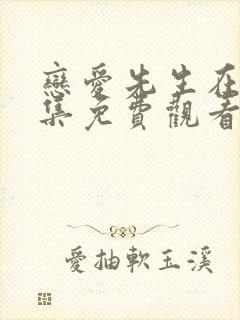 戀愛先生在
集免費觀看
愛抽軟玉溪